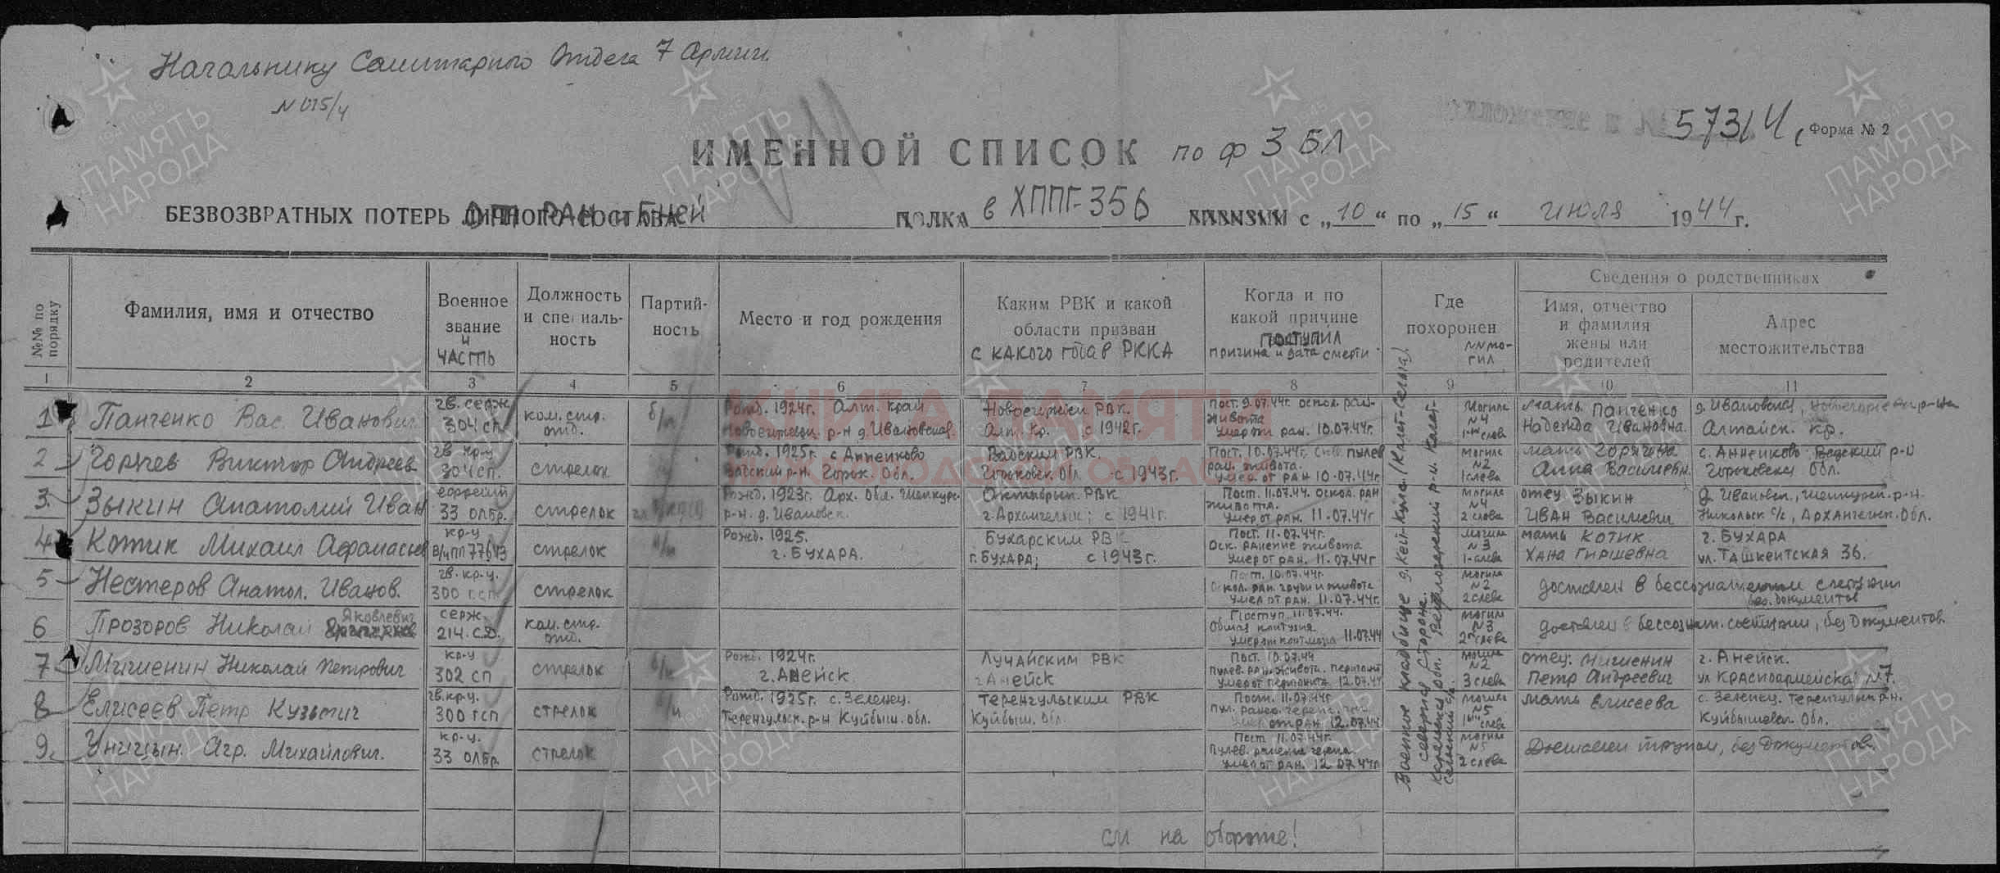 Начальнику Санитарного Отдела 7 Армии.
N 015/4
5731 Ч
Форма № 2
ИМЕННОЙ СПИСОК по ф 3 БЛ
БЕЗВОЗВРАТНЫХ ПОТЕРЬ ЛИЧНОГО СОСТАВА ОТ РАН и Б-ней ПОЛКА в ХППГ-356 с „10“ по „15“ июля 1944 г.
№№ по порядку
Фамилия, имя и отчество
Военное звание и часть
Должность и специальность
Партийность
Место и год рождения
Каким РВК и какой области призван с какого года в РККА
Когда и по какой причине поступил причина и дата смерти
Где похоронен NN могил
Сведения о родственниках
Имя, отчество и фамилия жены или родителей
Адрес местожительства
1 2 3 4 5 6 7 8 9 10 11
1 Панченко Вас. Иванович гв. серж. 304 сп ком. стр. отд. б/п Рожд. 1924г. Алт. край р-н д. Ивановска РВК. Алт. кр. с 1942г. Пост. 9.07.44г. оскол. ран. живота умер от ран. 10.07.44г. могила N4 1-ый слева мать Панченко Надежда Ивановна. д. Ивановска, Алтайск. кр.
2 Горячев Виктор Андреев. гв. кр-ц. 304 сп. стрелок Рожд. 1925г. с Анненково Вадский р-н Горьк. Обл. Вадским РВК. Горьковск. Обл с 1943г. Пост. 10.07.44г. пулев ран. живота. умер от ран 10.07.44г. могила N2 1 слева мать Горячева Анна Васильевн. с. Анненково Вадский р-н Горьковск Обл.
3. Зыкин Анатолий Иван ефрейтор 33 олбр. стрелок Рожд. 1923г. Арх. Обл. Шенкурс. р-н. д. Ивановск. Октябрьск. РВК г. Архангельск; с 1941г. Пост. 11.07.44. оскол. ран живота. умер от ран. 11.07.44г могила N4 2 слева отец Зыкин Иван Васильевич д. Ивановск., Шенкурск. р-н. Никольск с/с, Архангельск. Обл.
4 Котик Михаил Афанасьев кр-ц в/ч пп 77643 стрелок Рожд. 1925. г. Бухара. Бухарским РВК г. Бухара; с 1943г. Пост. 11.07.44г. Оск. ранение живота умер от ран. 11.07.44г могила N3 1-слева мать Котик Хана Гиршевна г. Бухара ул. Ташкентская 36.
5 Нестеров Анатол. Иванов. гв. кр-ц. 300 гсп стрелок Пост. 10.07.44г. ран. груди и живота умер от ран. 11.07.44г. могила N2 2 слева доставлен в бессознательном состоянии без. документов
6 Прозоров Николай Яковлевич серж. 214 с.д. ком. стр. отд. Поступ. 11.07.44. Общая контузия умер от контузии 11.07.44 могила N3 2ой слева доставлен в бессознат. состоянии, без документов.
7 Мишенин Николай Петрович кр-ц 302 сп стрелок б/п Рожд. 1924г. г. Анейск. Лучайским РВК г Анейск Пост. 10.07.44 Пулев. ран. живота. перитонит умер от перитонита 12.07.44г могила N2 3 слева отец. Мишенин Петр Андреевич г. Анейск. ул Красноармейска N7.
8 Елисеев Петр Кузьмич гв. кр-ц. 300 гсп стрелок Рожд. 1925г. с. Зеленец. Теренгульск. р-н Куйбыш. обл. Теренгульским РВК Куйбыш. Обл. Пост. 11.07.44г. умер от ран 12.07.44г могила N5 1ый слева мать Елисеева с. Зеленец. Теренгульск р-н. Куйбышевск Обл.
9. Уницын. Агр. Михайлович. кр-ц. 33 олбр. стрелок Пост. 11.07.44г. Пулев. ранение черепа. умер от ран. 12.07.44г могила N5 2 слева Доставлен трупом, без документов.
Военное кладбище д. Кейт-Кула (Кейт-Сельга). северная сторона. Ведлозерский р-н. Карельская
см на обороте!
КНИГА ПАМЯТИ
НОВГОРОДСКОЙ ОБЛАСТИ
ПАМЯТЬ НАРОДА